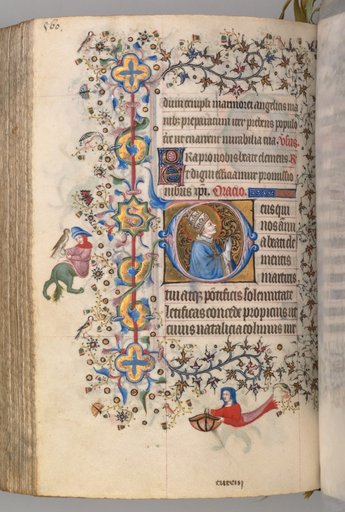 dium templum marmorei angelicis ma
nibus preparatum iter prebens populo
ut enarrent mirabilia tua. Vers.
Ora pro nobis beate clemens. R
ut digni efficiamur promissio
nibus xpi. Oracio.
Deus qui
nos annu
a beati cle
mentis
martiris
tui atque pontificis solemnitate
letificas concede propicius ut
cuius natalicia colimus uir